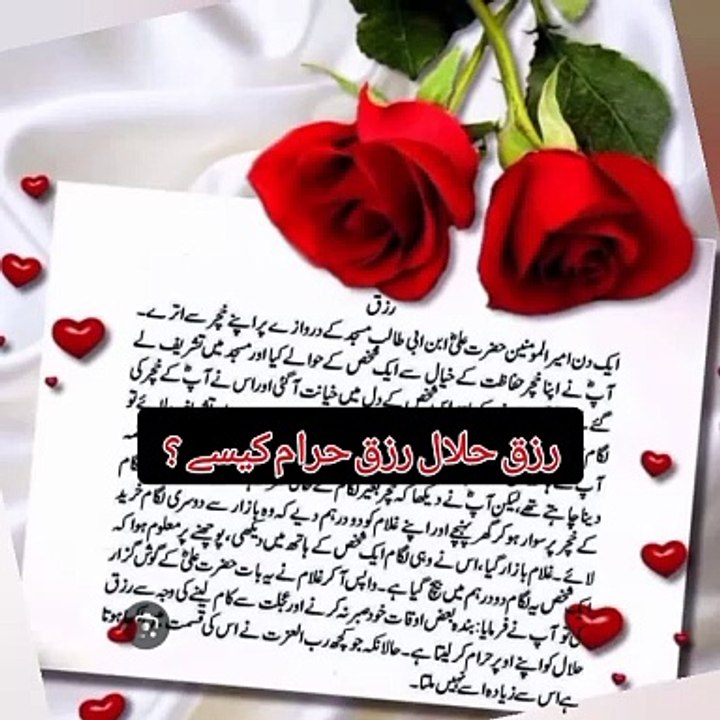 رزق
ایک دن امیر المومنین حضرت علیؑ ابن ابی طالب مسجد کے دروازے پر اپنے خچر سے اترے۔
آپؑ نے اپنا خچر حفاظت کے خیال سے ایک شخص کے حوالے کیا اور مسجد میں تشریف لے
گئے۔ اس شخص کے دل میں خیانت آ گئی اور اس نے آپؑ کے خچر کی
لگام
رزق حلال رزق حرام کیسے ؟
آپؑ
دینا چاہتے تھے، لیکن آپؑ نے دیکھا کہ خچر بغیر لگام کے
کے خچر پر سوار ہو کر گھر پہنچے اور اپنے غلام کو دو درہم دیے کہ وہ بازار سے دوسری لگام خرید
لائے۔ غلام بازار گیا، اس نے وہی لگام ایک شخص کے ہاتھ میں دیکھی، پوچھنے پر معلوم ہوا کہ
ایک شخص یہ لگام دو درہم میں بیچ گیا ہے۔ واپس آ کر غلام نے یہ بات حضرت علیؑ کے گوش گزار
کی تو آپ نے فرمایا: بندہ بعض اوقات خود صبر نہ کرنے اور عجلت سے کام لینے کی وجہ سے رزق
حلال کو اپنے اوپر حرام کر لیتا ہے۔ حالانکہ جو کچھ رب العزت نے اس کی قسمت ہوتا
ہے اس سے زیادہ اسے نہیں ملتا۔